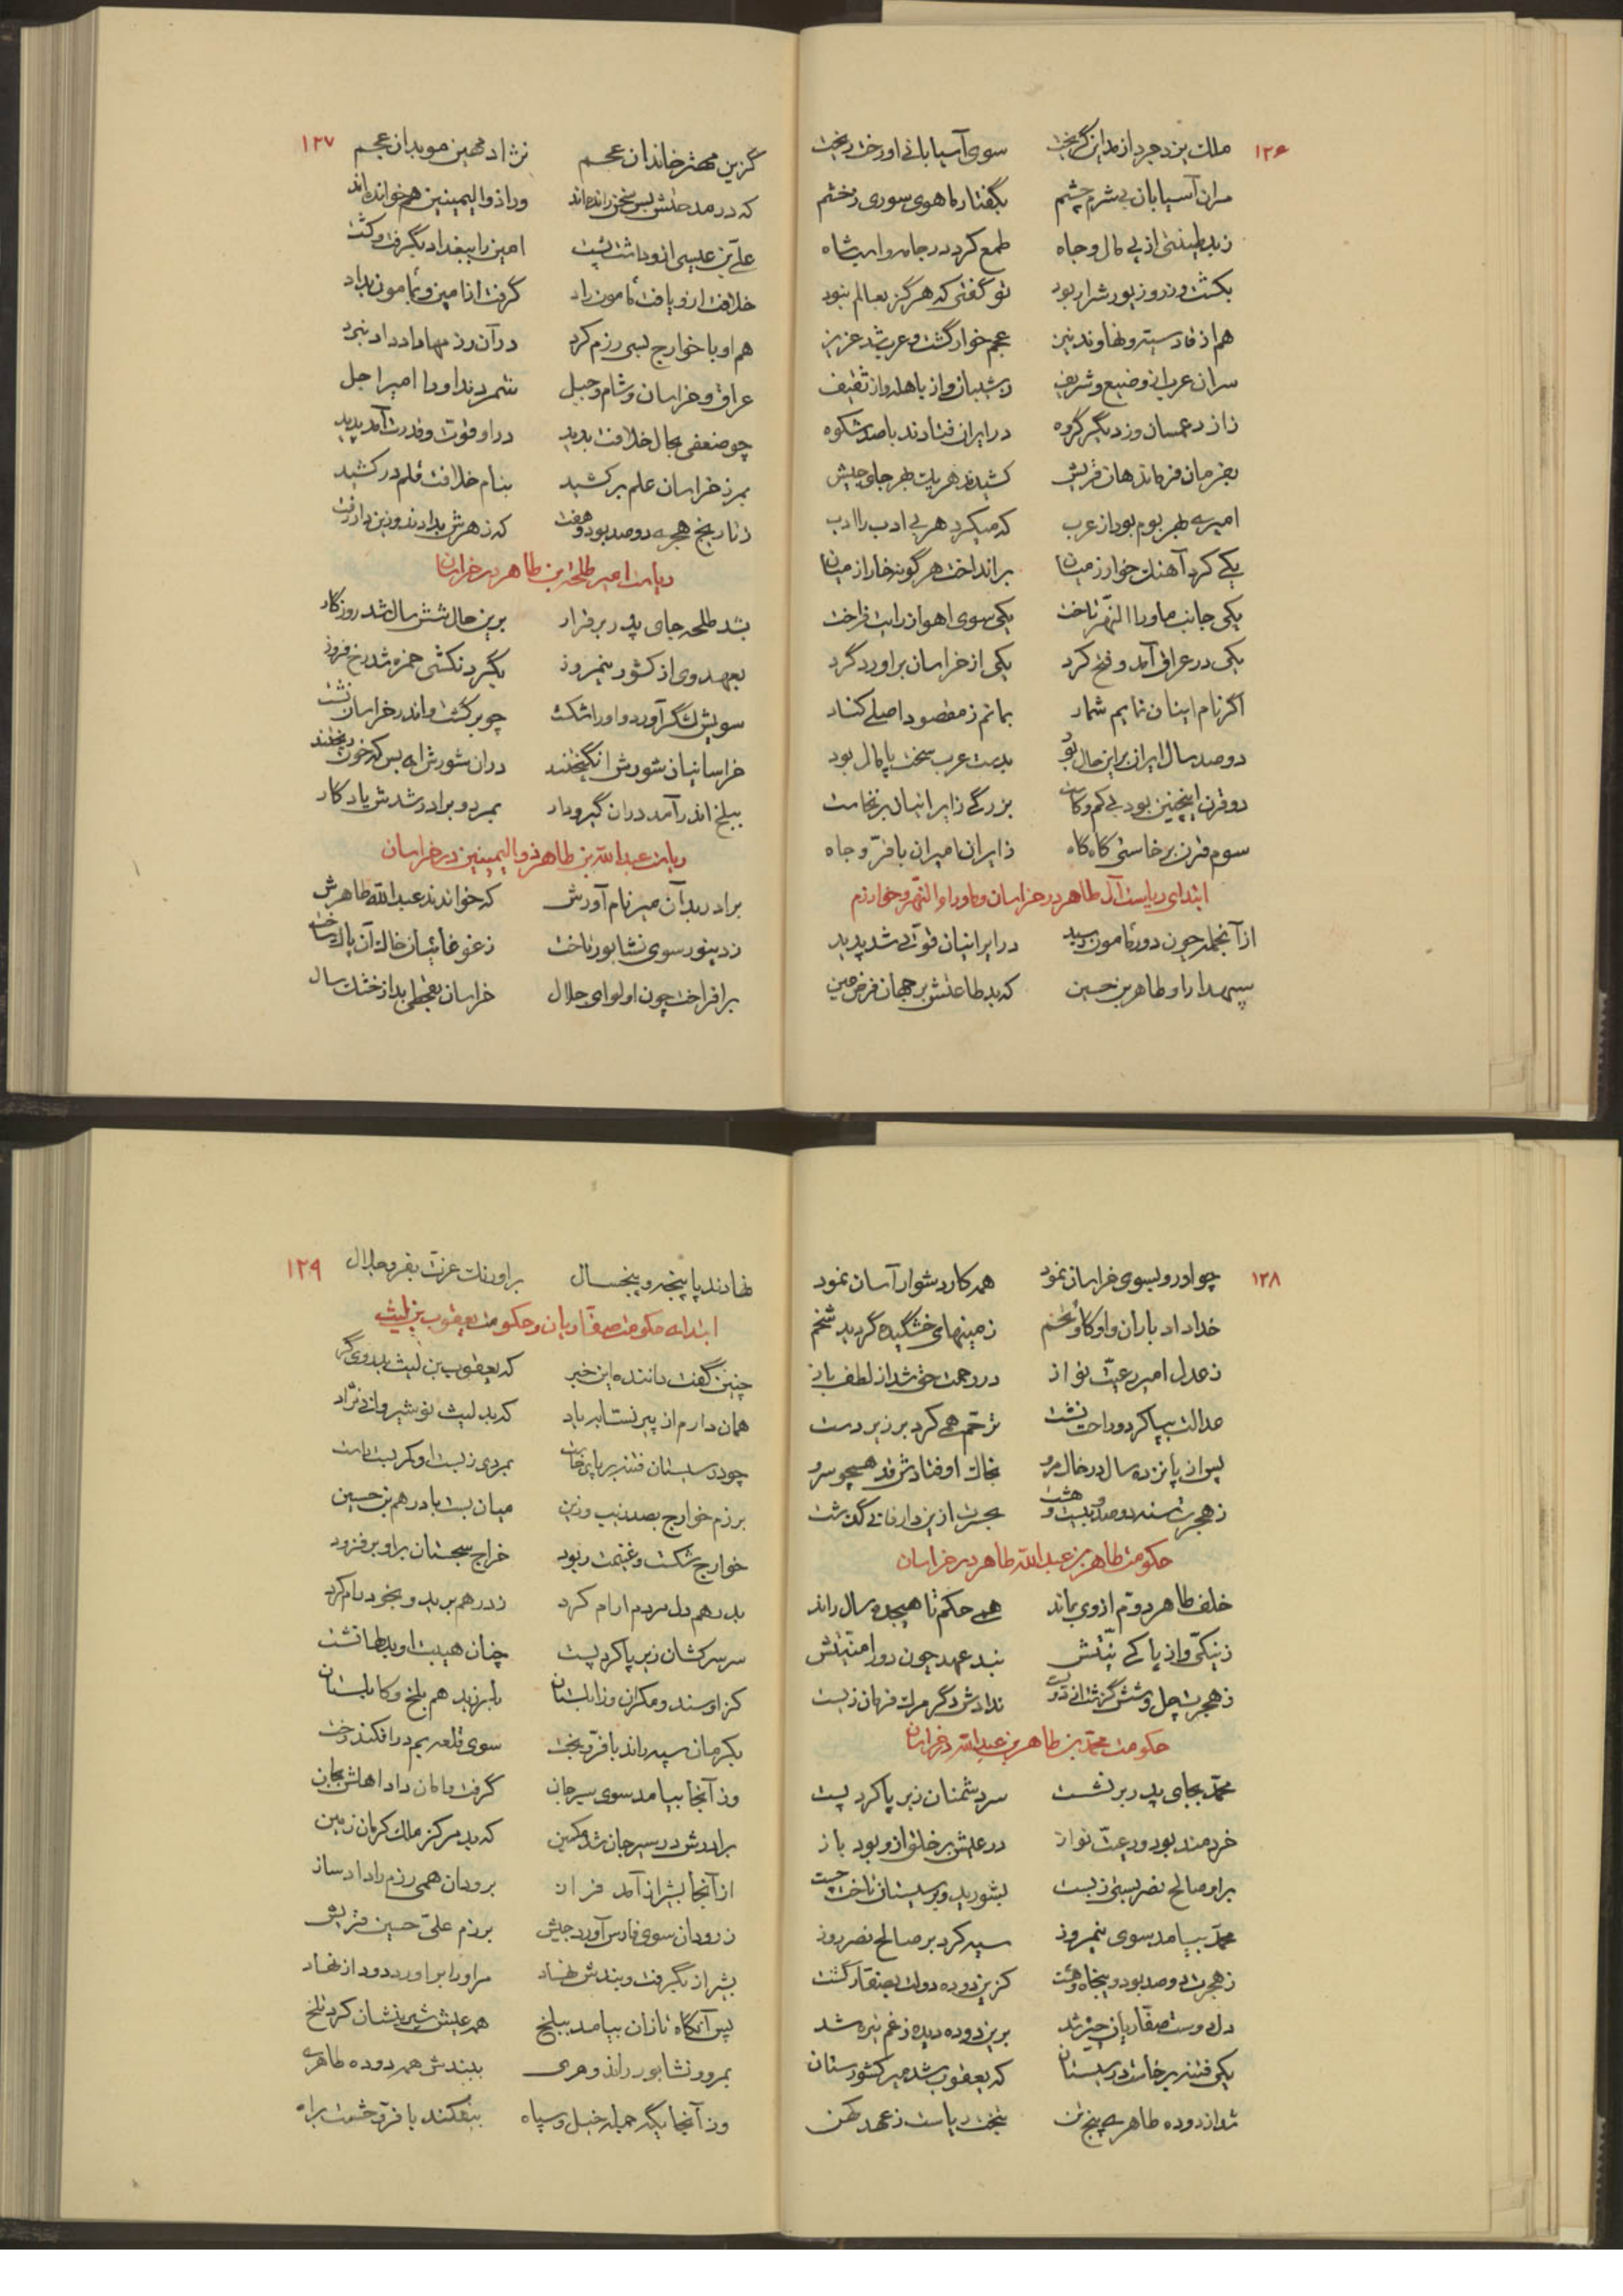 ۱۲۶
ملک یزدجرد از مداین گریخت سوی آسیابانی او رخت ریخت
مران آسیابان بی شرم چشم بگفتار ماهوی سوری زخشم
زبد طینتی از پی مال و جاه طمع کرد در جامه شاه
بکشت و زد روز پور شرار بود تو گفتی که هرگز بعالم نبود
هم از قادسیه و نهاوند نیز عجم خوار گشت و عرب شد عزیز
سران عرب از وضیع و شریف ز شیبان و از باهله و از ثقیف
در ایران فتادند با صد شکوه
بفرمان فرماندهان قریش کشیدند هر یک بهر جای جیش
امیری بهر بوم بود از عرب که میکرد هر بی ادب را ادب
یکی کرد آهنگ خوارزمیان برانداخت هر گونه خار از میان
یکی جانب ماوراالنهر تاخت یکی سوی اهواز رایت فراخت
یکی در عراق آمد و فتح کرد یکی از خراسان براورد گرد
اگر نام اینان نمایم شمار بمانم ز مقصود اصلی کنار
دو صد سال ایران براین حال بود بدست عرب سخت پامال بود
دو قرن اینچنین بود بی کم و کاست بزرگی ز ایرانیان برنخاست
سوم قرن برخاستی گاه گاه ز ایران امیران با فرّ و جاه
ابتدای ریاست آل طاهر در خراسان و ماوراء النهر و خوارزم
از آنجمله چون دور مامون رسید در ایرانیان قوتی شد پدید
سپهدار او طاهر بن حسین که بد طاعتش بر جهان فرض عین
۱۲۷
گزین مهتر خاندان عجم نژاد مهین موبدان عجم
که در مدحتش بس سخن رانده اند ورا ذوالیمینین هم خوانده اند
علی بن عیسی ازو داشت پشت امین را ببغداد بگرفت و کشت
خلافت ازو یافت مامون راد گرفت از امین و بمامون بداد
هم او با خوارج بسی رزم کرد در آن رزمها داد داد نبرد
عراق و خراسان و شام و جبل شمردند او را امیر اجل
چو ضعفی بحال خلافت بدید در او قوت و قدرت آمد پدید
بمرز خراسان علم برکشید بنام خلافت قلم درکشید
ز تاریخ هجره دو صد بود و هفت که زهرش بدادند و زین دار رفت
ریاست امیر طلحه بن طاهر در خراسان
بشد طلحه جای پدر برقرار برین حال شش سال شد روزگار
بعهد وی از کشور نیمروز بگردنکشی حمزه شد رخ فروز
سویش لشگر آورد و او را شکست چو برگشت و اندر خراسان نشست
خراسانیان شورش انگیختند دران شورش ای بس که خون ریختند
ببلخ اندر آمد دران گیر و دار بمرد و برادر شدش یادگار
ریاست عبدالله بن طاهر ذوالیمینین در خراسان
برادر بد آن میر نام آورش که خواندند عبدالله طاهرش
ز دینور سوی نشابور تاخت ز غوغائیان خاک آن پاک ساخت
برافراخت چون او لوای جلال خراسان بقحطی بد از خشک سال
۱۲۸
چو او رو بسوی خراسان نمود همه کار دشوار آسان نمود
خدا داد باران و او گاو و تخم زمینهای خشگیده گردید شخم
ز عدل امیر رعیت نواز در رحمت حق شد از لطف باز
عدالت بپا کرد و راحت نشست ترحم همی کرد بر زیر دست
پس از پانزده سال در خال مرو بخاک اوفتادش قد همچو سرو
ز هجرت سنه دو صد و بیست و هشت بحسرت ازین دار فانی گذشت
حکومت طاهر بن عبدالله طاهر در خراسان
خلف طاهر دوم از وی بماند همی حکم تا هیجده سال راند
ز نیکی و از پاکی نیتش نبد عهد چون دور امنیتش
ندادش دگر مرگ فرمان زیست
حکومت محمّد بن طاهر بن عبدالله در خراسان
محمّد بجای پدر برنشست سر دشمنان زیر پا کرد پست
خردمند بود و رعیّت نواز در عیش بر خلق ازو بود باز
براو صالح نصر بستی ز بست بشورید و بر سیستان تاخت چست
محمّد بیامد بسوی نیمروز سیه کرد بر صالح نصر روز
ز هجرت دو صد بود و پنجاه و هشت کزین دوده دولت بصفّار گشت
دل و دست صفّاریان چیره شد برین دوده دیده ز غم تیره شد
یکی فتنه برخاست در سیستان که یعقوب شد میر کشورستان
شد از دوده طاهری پنج تن بتخت ریاست ز عهد کهن
۱۲۹
نهادند پا پنجه و پنجسال براورنگ عزت بفر و جلال
ابتدای حکومت صفّاریان و حکومت یعقوب بن لیث
چنین گفت داننده این خبر که یعقوب بن لیث بد رویگر
همان دارم از پیر نستابه یاد که بد لیث نوشیروانی نژاد
چو در سیستان فتنه بر پای خاست بمردی ز بست او کمر بست راست
برزم خوارج بصد زیب و زین میان بست با درهم بن حسین
خوارج شکست و غنیمت ربود خراج سجستان براو برفزود
بدرهم دل مردم ارام کرد ز درهم برید و بخود رام کرد
سر سرکشان زیر پا کرد پست چنان هیبت او بدلها نشست
کز او سند و مکران و زابلستان بلرزید هم بلخ و کابلستان
بکرمان سپه راند با فرّ و بخت سوی قلعه بم درافکند رخت
وز آنجا بیامد سوی سیرجان گرفت و امان داد اهلش بجان
برادرش در سیرجان شد مکین که بد مرکز ملک کرمان زمین
از آنجا بشیراز آمد فراز برودان همی رزم را داد ساز
ز رودان سوی فارس آورد جیش برزم علیّ حسین قریش
بشیراز بگرفت و بندش نهاد مراو را براورد دود از نهاد
پس آنگاه تازان بیامد ببلخ همه عیش شیرینشان کرد تلخ
بمرو و نشابور راند و هری ببندش همه دوده طاهری
وز آنجا یگه جمله خیل و سپاه بیفکند با فرّ و حشمت براه